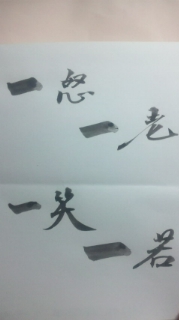 一怒
一老
一笑
一若